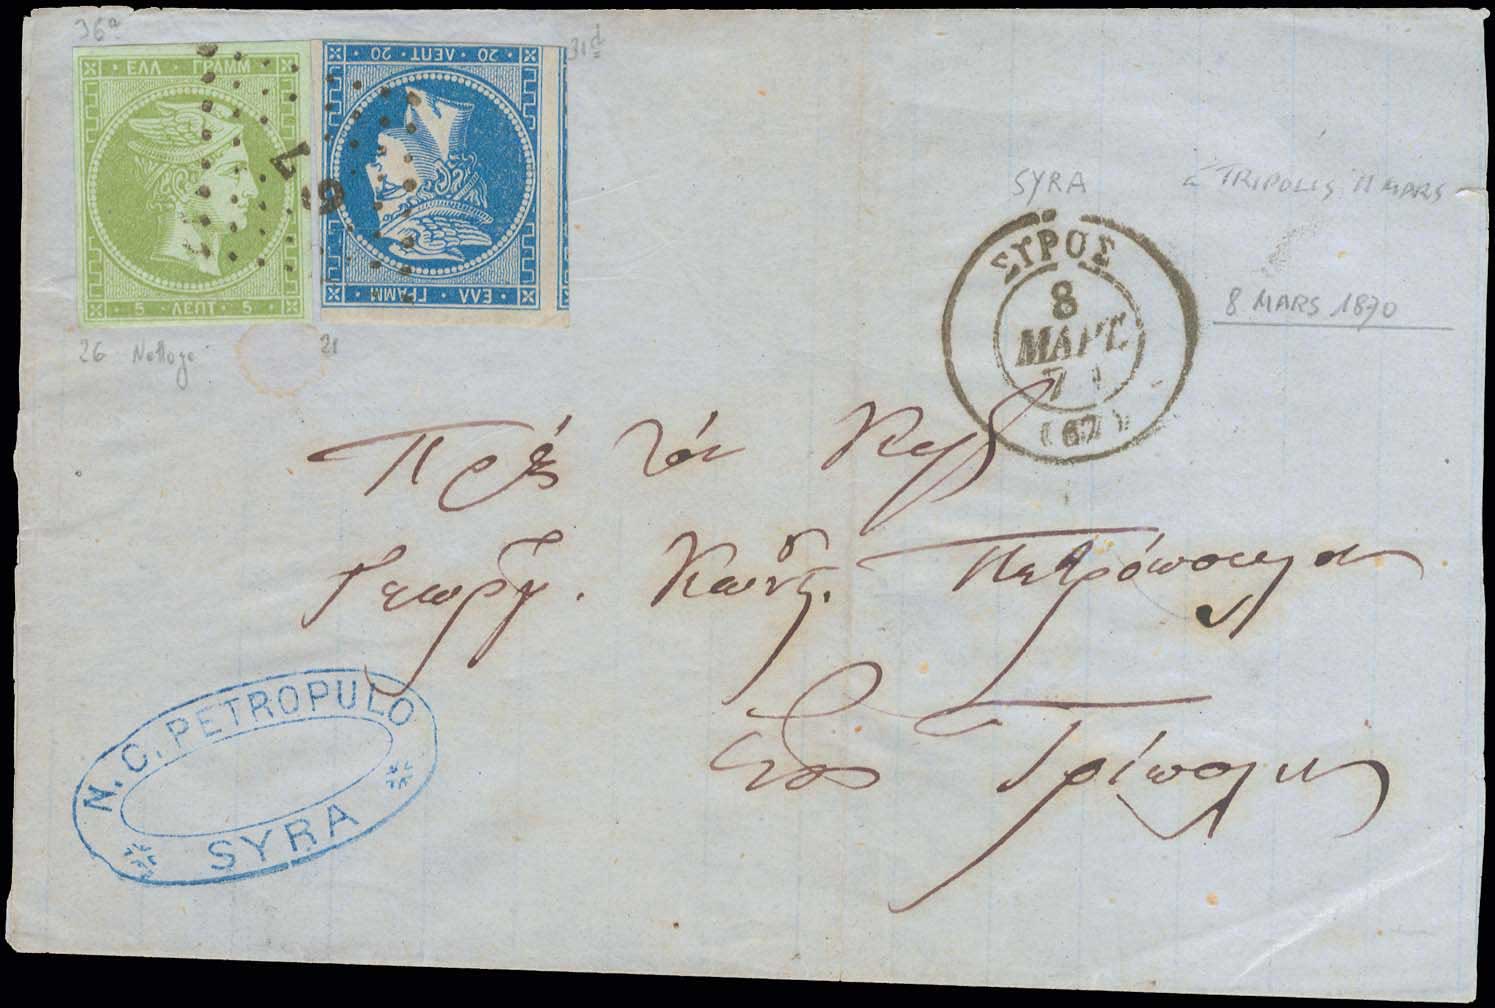 36a
31d
ΕΛΛ ΓΡΑΜΜ
5 ΛΕΠΤ 5
20 ΛΕΠΤ 20
ΕΛΛ ΓΡΑΜΜ
67
26
21
SYRA
TRIPOLIS 11 MARS
8 MARS 1870
ΣΥΡΟΣ
8
ΜΑΡΤ.
7
(67)
Πρὸς τὸν Κυρ
Γεωργ. Κωνστ. Πετρόπουλον
Εἰς Τρίπολιν
N. C. PETROPULO
SYRA